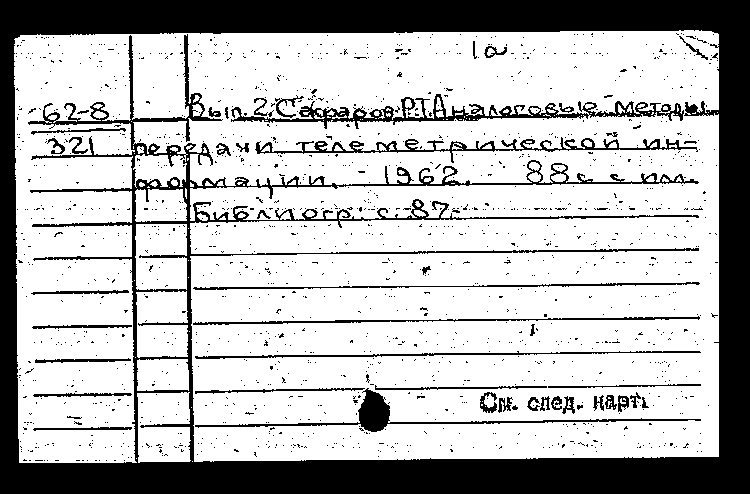 1а
62-8 Вып. 2. Сафаров, Р.Т. Аналоговые методы
321 передачи телеметрической ин-
формации. 1962. 88 с. с ил.
Библиогр: с. 87.
См. след. карт.